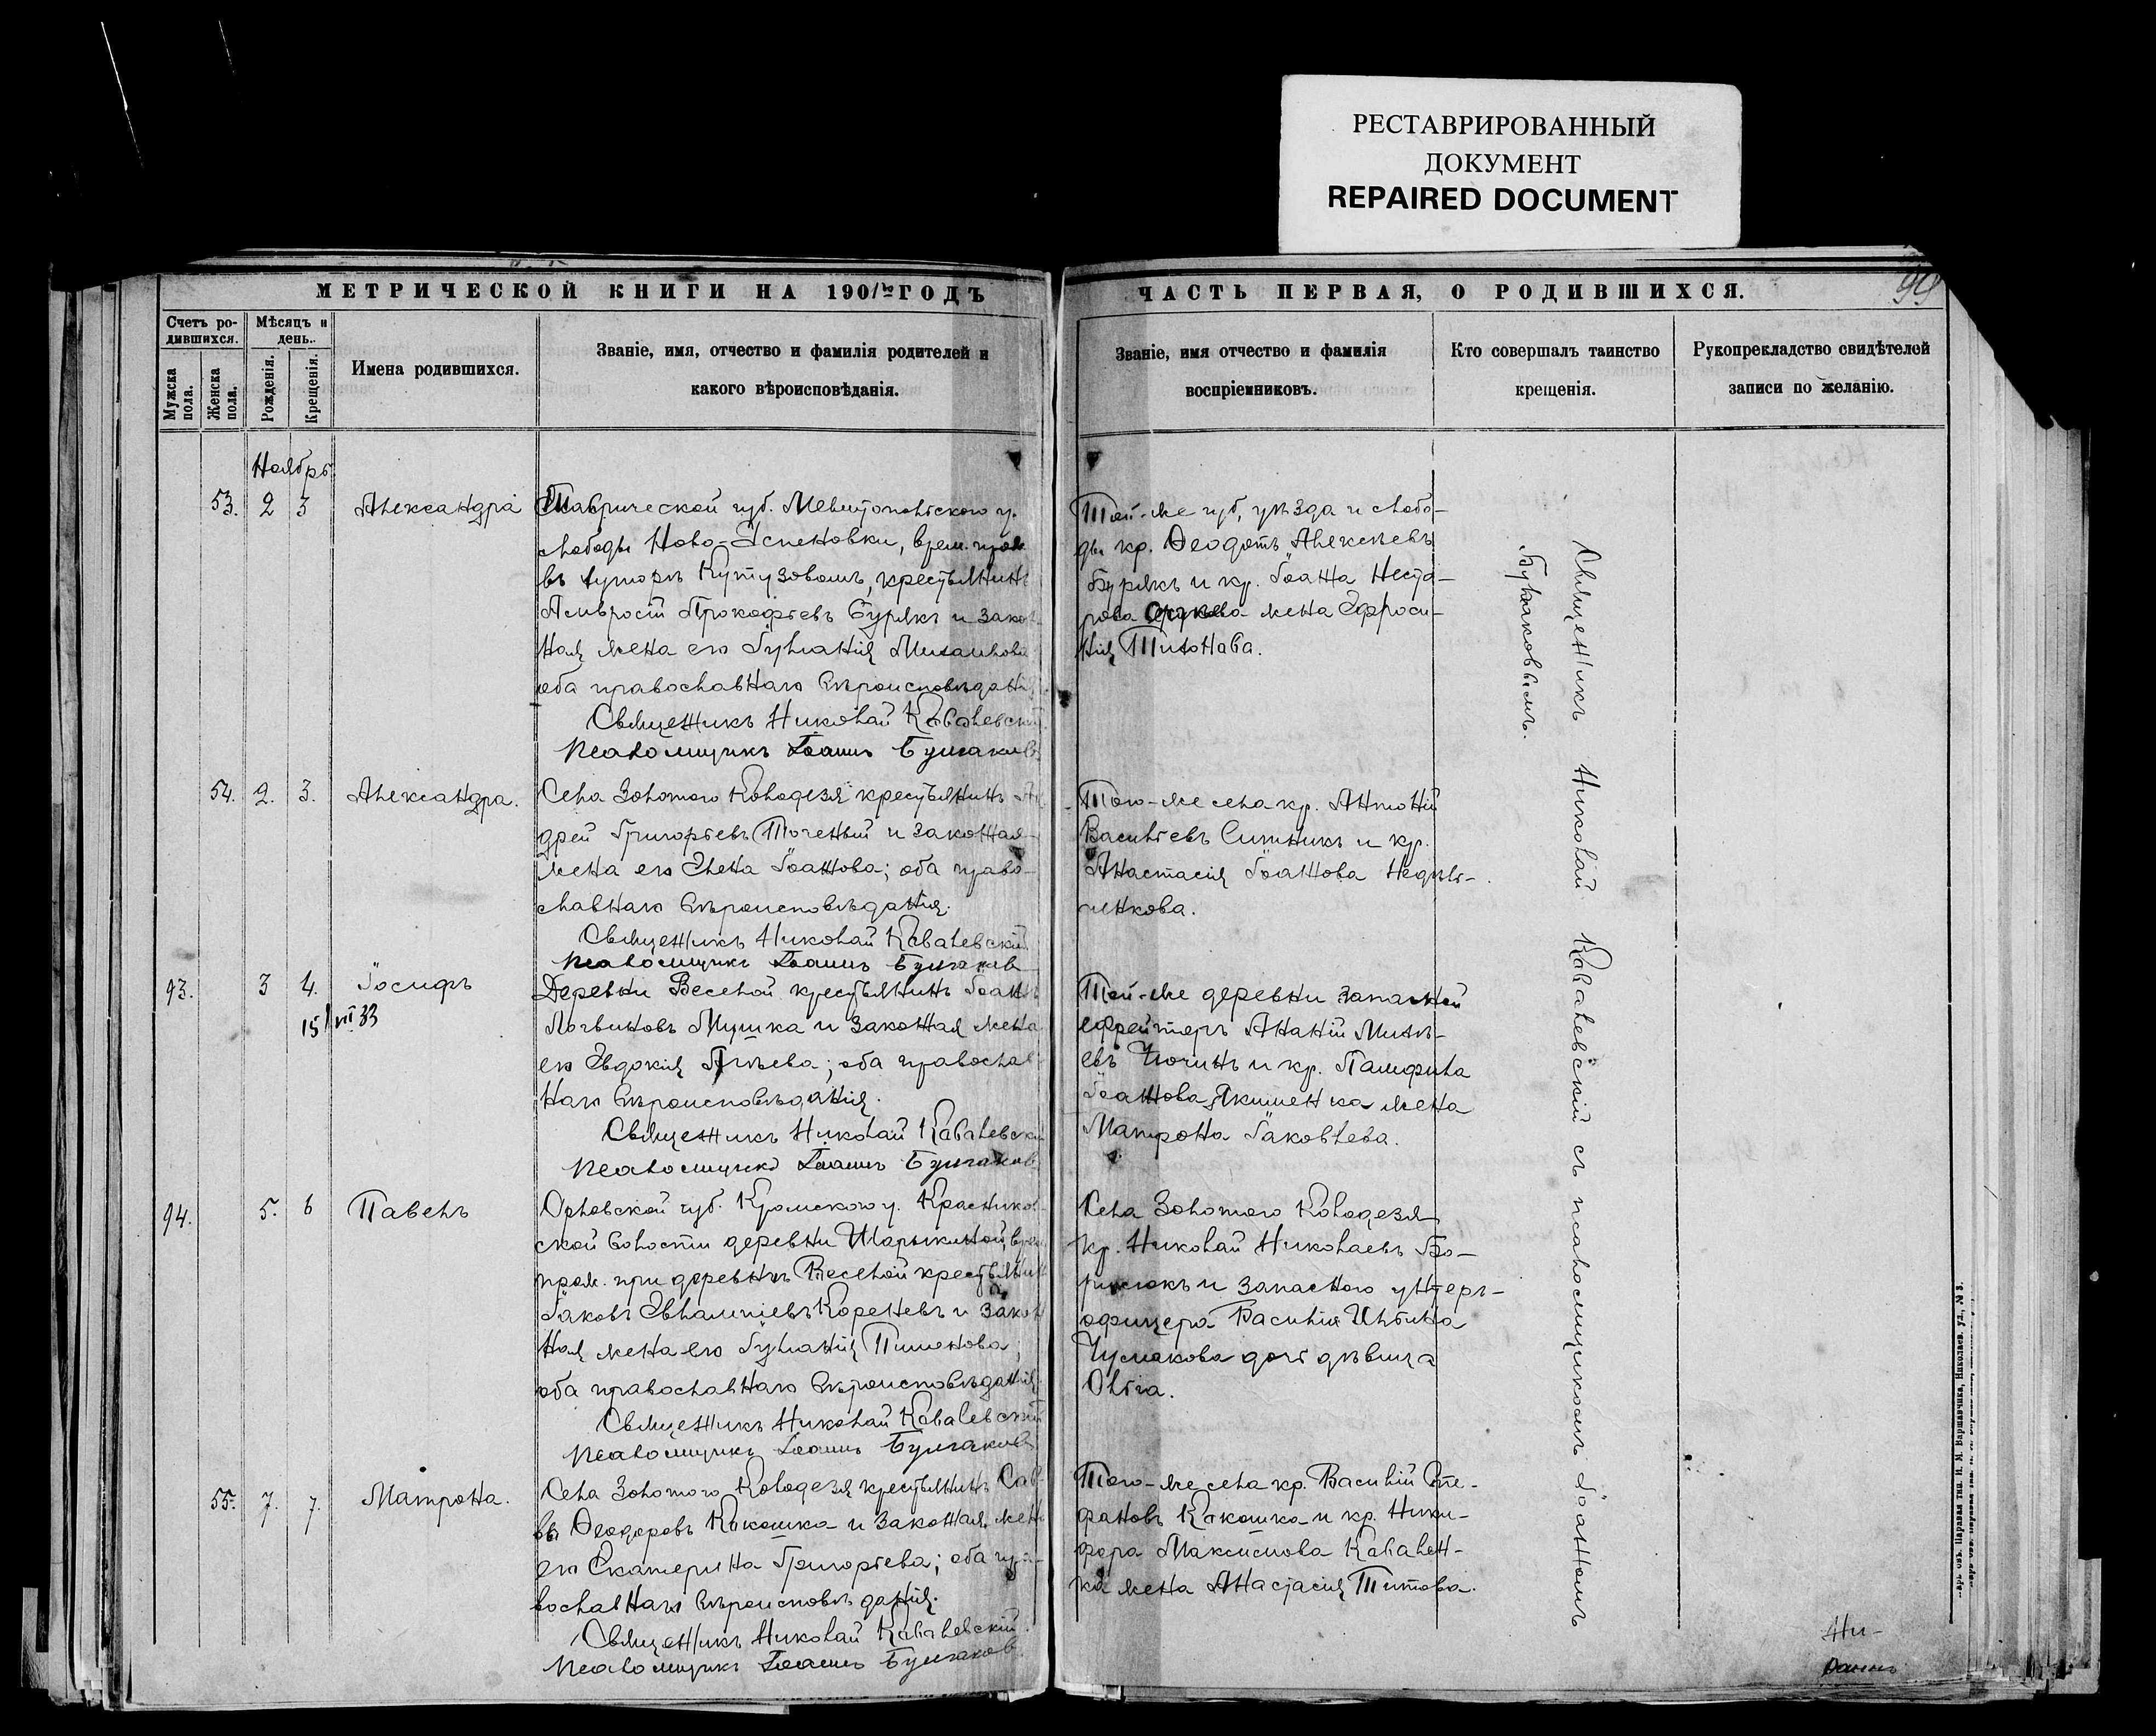 РЕСТАВРИРОВАННЫЙ
ДОКУМЕНТ
REPAIRED DOCUMENT
МЕТРИЧЕСКОЙ КНИГИ НА 1901й ГОДЪ
ЧАСТЬ ПЕРВАЯ, О РОДИВШИХСЯ.
99
Счетъ ро-
дившихся.
Мужска
пола.
Женска
пола.
Мѣсяцъ и
день.
Рожденія.
Крещенія.
Имена родившихся.
Званіе, имя, отчество и фамилія родителей и
какого вѣроисповѣданія.
Званіе, имя отчество и фамилія
воспріемниковъ.
Кто совершалъ таинство
крещенія.
Рукоприкладство свидѣтелей
записи по желанію.
Ноябрь
53. 2 3 Александра
Таврической губ. Мелитопольскаго у.
слободы Ново-Успеновки, врем. прож.
въ хуторѣ Кутузовомъ, крестьянинъ
Амвросій Прокофьевъ Бурякъ и закон-
ная жена его Іуліанія Михаилова
оба православнаго вѣроисповѣданія
Священникъ Николай Кавалевскій
Псаломщикъ Іоаннъ Булгаковъ
Той-же губ., уѣзда и слобо-
ды кр. Ѳеодотъ Алексѣевъ
Бурякъ и кр. Іоанна Несто-
рова жена Ефроси-
нія Тихонова.
54. 2. 3. Александра.
Села Золотого Колодезя крестьянинъ Ан-
дрей Григорьевъ Точеный и законная
жена его Елена Іоаннова; оба право-
славнаго вѣроисповѣданія.
Священникъ Николай Кавалевскій
Псаломщикъ Іоаннъ Булгаковъ
Того-же села кр. Антоній
Васильевъ Ситникъ и кр.
Анастасія Іоаннова Недѣль-
ченкова.
93. 3 4. Іосифъ
15/VII 33
Деревни Веселой крестьянинъ Іоаннъ
Логвиновъ Мушка и законная жена
его Евдокія; оба православ-
наго вѣроисповѣданія.
Священникъ Николай Кавалевскій
Псаломщикъ Іоаннъ Булгаковъ
Той-же деревни запасной
ефрейторъ Ананій Михѣ-
евъ и кр. Памфила
Іоаннова Якименка жена
Матрона Іаковлева.
94. 5. 6 Павелъ
Орловской губ. Кромскаго у. Красников-
ской волости деревни Шарыкиной, врем.
прож. при деревнѣ Веселой крестьянинъ
Іаковъ Евлампіевъ Кореневъ и закон-
ная жена его Іуліанія Пименова;
оба православнаго вѣроисповѣданія
Священникъ Николай Кавалевскій
Псаломщикъ Іоаннъ Булгаковъ
Села Золотого Колодезя
кр. Николай Николаевъ Бо-
рисюкъ и запасного унтеръ-
офицера Василія Ильина
Чумакова дочь дѣвица
Ольга.
55. 7. 7. Матрона.
Села Золотого Колодезя крестьянинъ Сав-
ва Ѳеодоровъ Кокошка и законная жена
его Екатерина Григорьева; оба пра-
вославнаго вѣроисповѣданія.
Священникъ Николай Кавалевскій
Псаломщикъ Іоаннъ Булгаковъ
Того-же села кр. Василій Сте-
фановъ Кокошка и кр. Ники-
фора Максимова Кавален-
ка жена Анастасія Титова.
Священникъ Николай Кавалевскій съ псаломщикомъ Іоанномъ
Булгаковымъ.